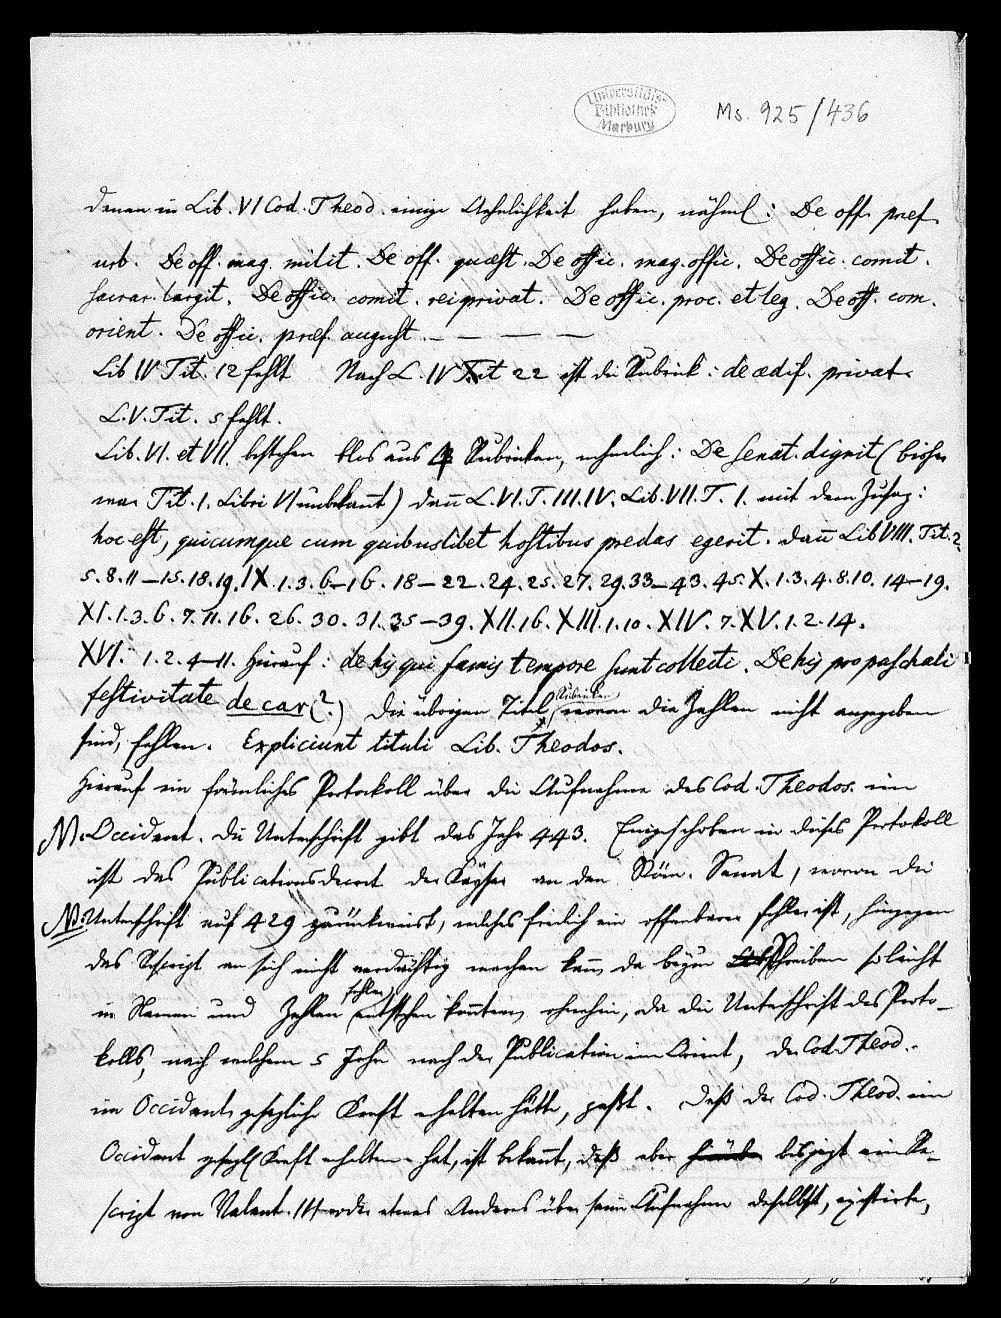 Universitäts-
Bibliothek
Marburg
Ms. 925/436
denen in Lib. VI Cod. Theod. einige Aehnlichkeit haben, nähml: De off. præf.
urb. De off. mag. milit. De off. quæst. De offic. mag. offic. De offic. comit.
sacrar. largit. De offic. comit. rei privat. De offic. proc. et leg. De off. com.
orient. De offic. præf. august. — — —
Lib IV Tit. 12 fehlt Nach L. IV Tit 22 ist die Rubrik: de ædif. privat.
L. V. Tit. 5 fehlt.
Lib. VI. et VII. bestehen blos aus 4 Rubriken, nehmlich: De Senat. dignit (bisher
war Tit. 1. Libri VI unbekannt) dann L. VI. T. III. IV. Lib. VII. T. 1. mit dem Zusaz:
hoc est, quicumque cum quibuslibet hostibus predas egerit. dann Lib VIII. Tit. 2.
5. 8. 11–15. 18. 19. IX. 1. 3. 6–16. 18–22. 24. 25. 27. 29. 33–43. 45. X. 1. 3. 4. 8. 10. 14–19.
XI. 1. 3. 6. 7. 11. 16. 26. 30. 31. 35–39. XII. 16. XIII. 1. 10. XIV. 7. XV. 1. 2. 14.
XVI. 1. 2. 4–11. hierauf: de hys qui famis tempore sunt collecti. De hys pro paschali
festivitate de car (?) Die übrigen Titel Rubriken wovon die Zahlen nicht angegeben
sind, fehlen. Expliciunt tituli Lib. Theodos.
Hierauf ein förmliches Protokoll über die Aufnahme des Cod. Theodos. im
N. Occident. Die Unterschrift gibt das Jahr 443. Eingeschoben in dieses Protokoll
ist das Publicationsdecret der Kayser an den Röm. Senat, wovon die
NB. Unterschrift auf 429 zurückweist, welches freilich ein offenbarer Fehler ist, hingegen
das Rescript an sich nicht verdächtig machen kann, da beym Abschreiben so leicht
in Namen und Zahlen Fehler entstehen konnten, ohnehin, da die Unterschrift des Proto-
kolls, nach welchem 5 Jahr nach der Publication im Orient, der Cod. Theod.
im Occident gesezliche Kraft erhalten hätte, passt. Daß der Cod. Theod. im
Occident gesezl Kraft erhalten hat, ist bekannt, daß aber bis jezt ein Re-
script von Valent. III oder etwas Anderes über seine Aufnahme daselbst, existirte,